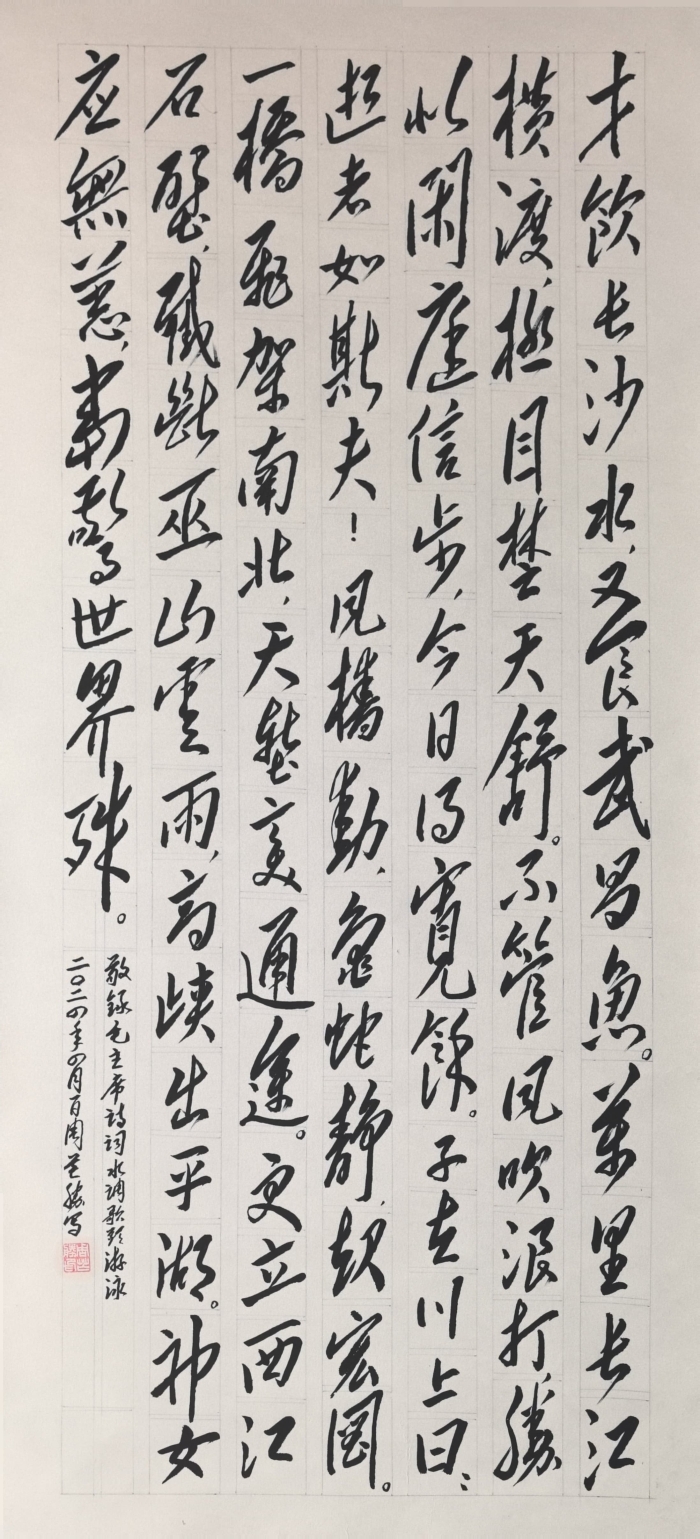 才飲长沙水，又食武昌魚。萬里长江
横渡，極目楚天舒。不管风吹浪打，勝
似闲庭信步，今日得寬餘。子在川上曰：
逝者如斯夫！风樯動，龜蛇静，起宏图。
一橋飛架南北，天塹变通途。更立西江
石壁，截断巫山雲雨，高峡出平湖。神女
应無恙，当驚世界殊。
敬録毛主席诗词水调歌头游泳
二〇二四年四月 周 写